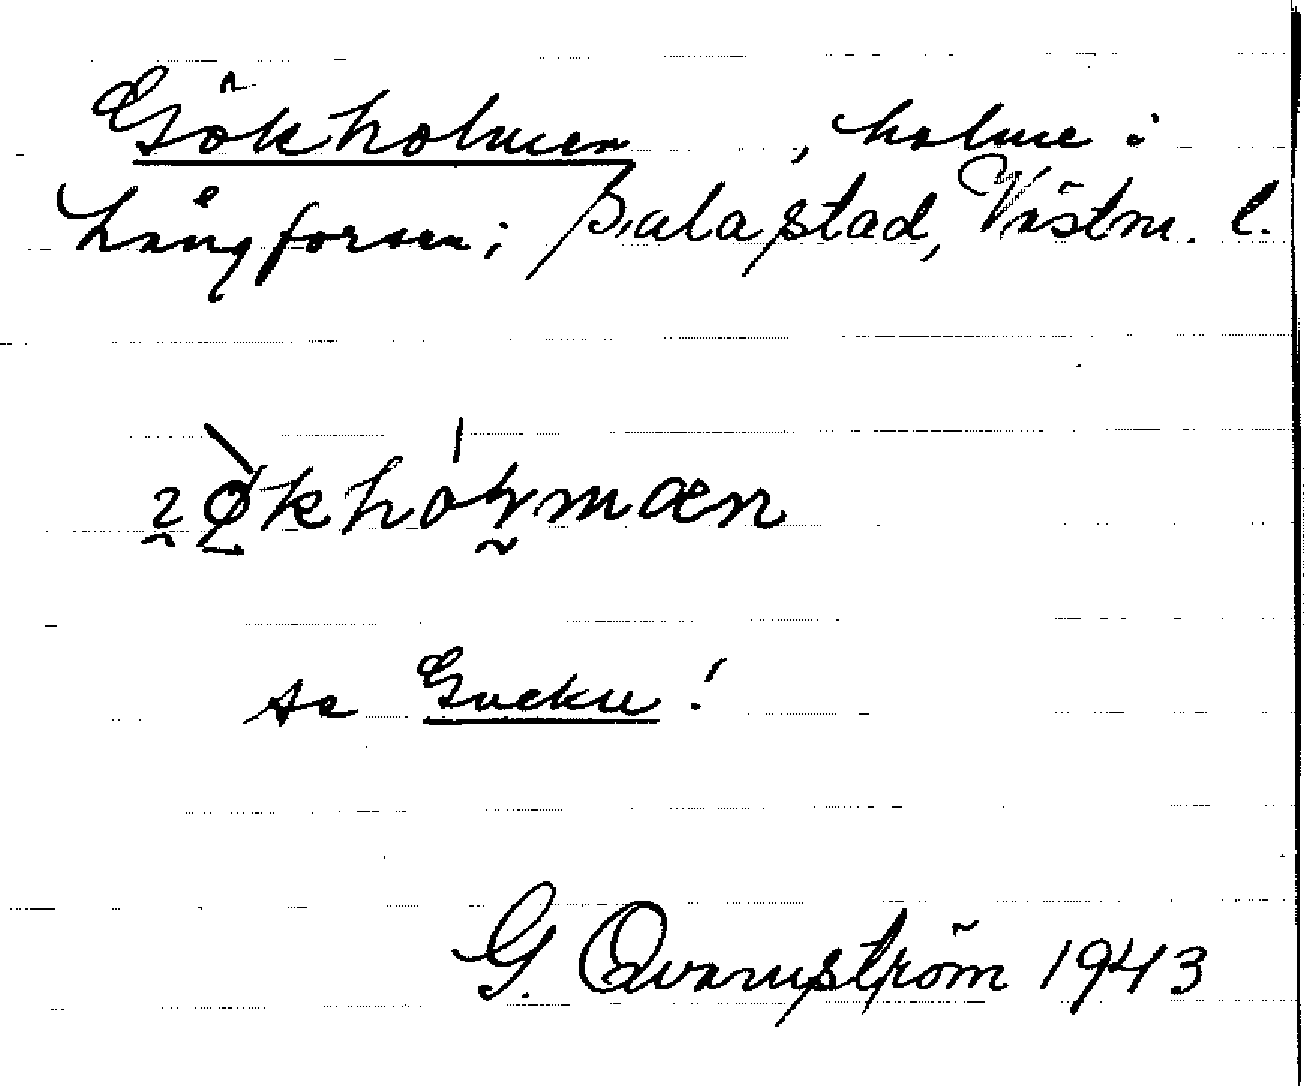 Gökholmen, holme i
Långforsen; Sala stad, Västm. l.
økhólmæn
se Gucku!
G. Qvarnström 1943